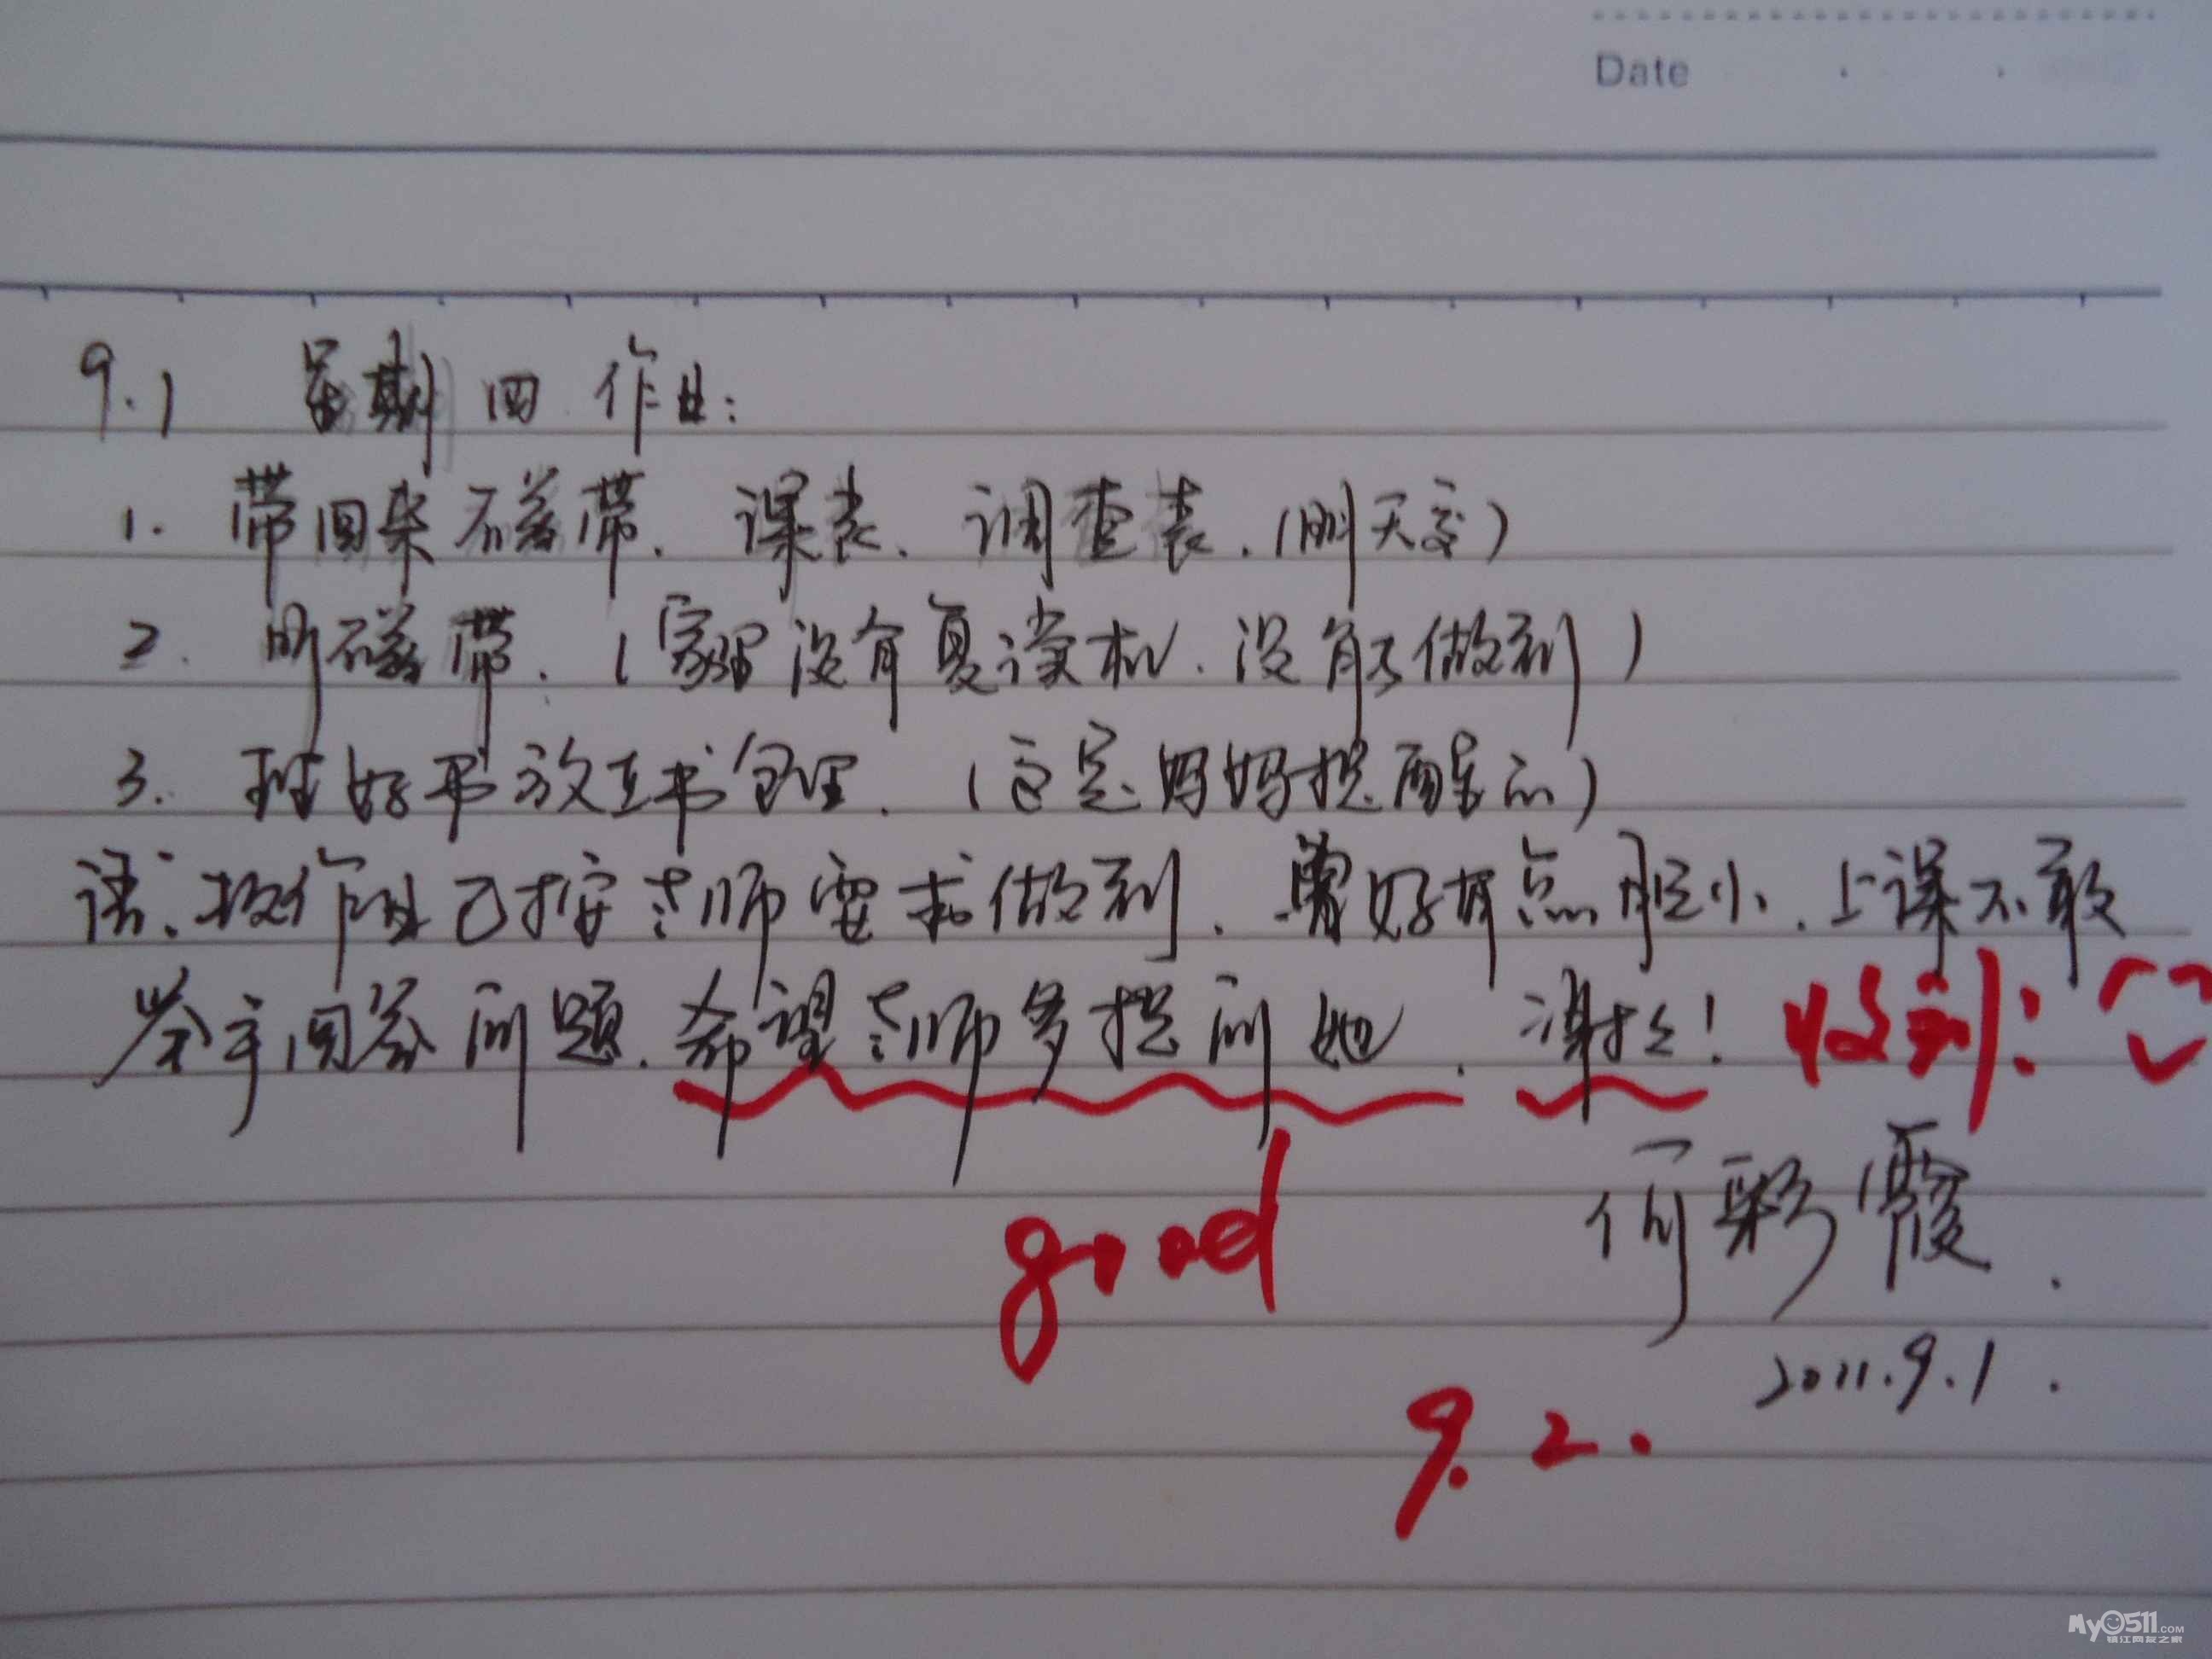 Date
9.1 星期四 作业:
1. 带回来磁带、课表、调查表.(明天交)
2. 听磁带.(家里没有复读机.没有做到)
3. 理好书放在书包里.(这是妈妈提醒的)
语、数作业已按老师要求做到.曾好有点胆小.上课不敢
举手回答问题.希望老师多提问她.谢谢! 收到:
何彩霞.
good
2011.9.1.
9.2.
My0511.COM
镇江网友之家